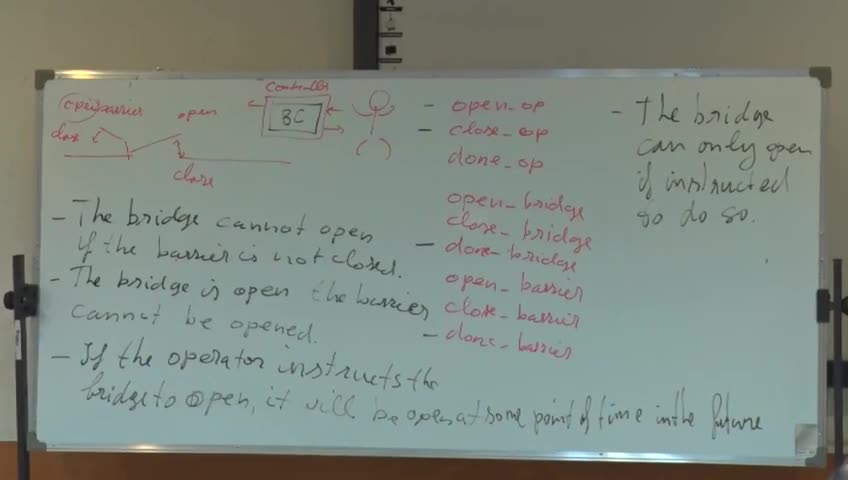 barrier
open
close
close
controller
BC
- open_op
- close_op
done_op
open_bridge
close_bridge
- done_bridge
open_barrier
close_barrier
- done_barrier
- The bridge
can only open
if instructed
to do so.
- The bridge cannot open
if the barrier is not closed.
- The bridge is open the barrier
cannot be opened.
- If the operator instructs the
bridge to open, it will be open at some point of time in the future